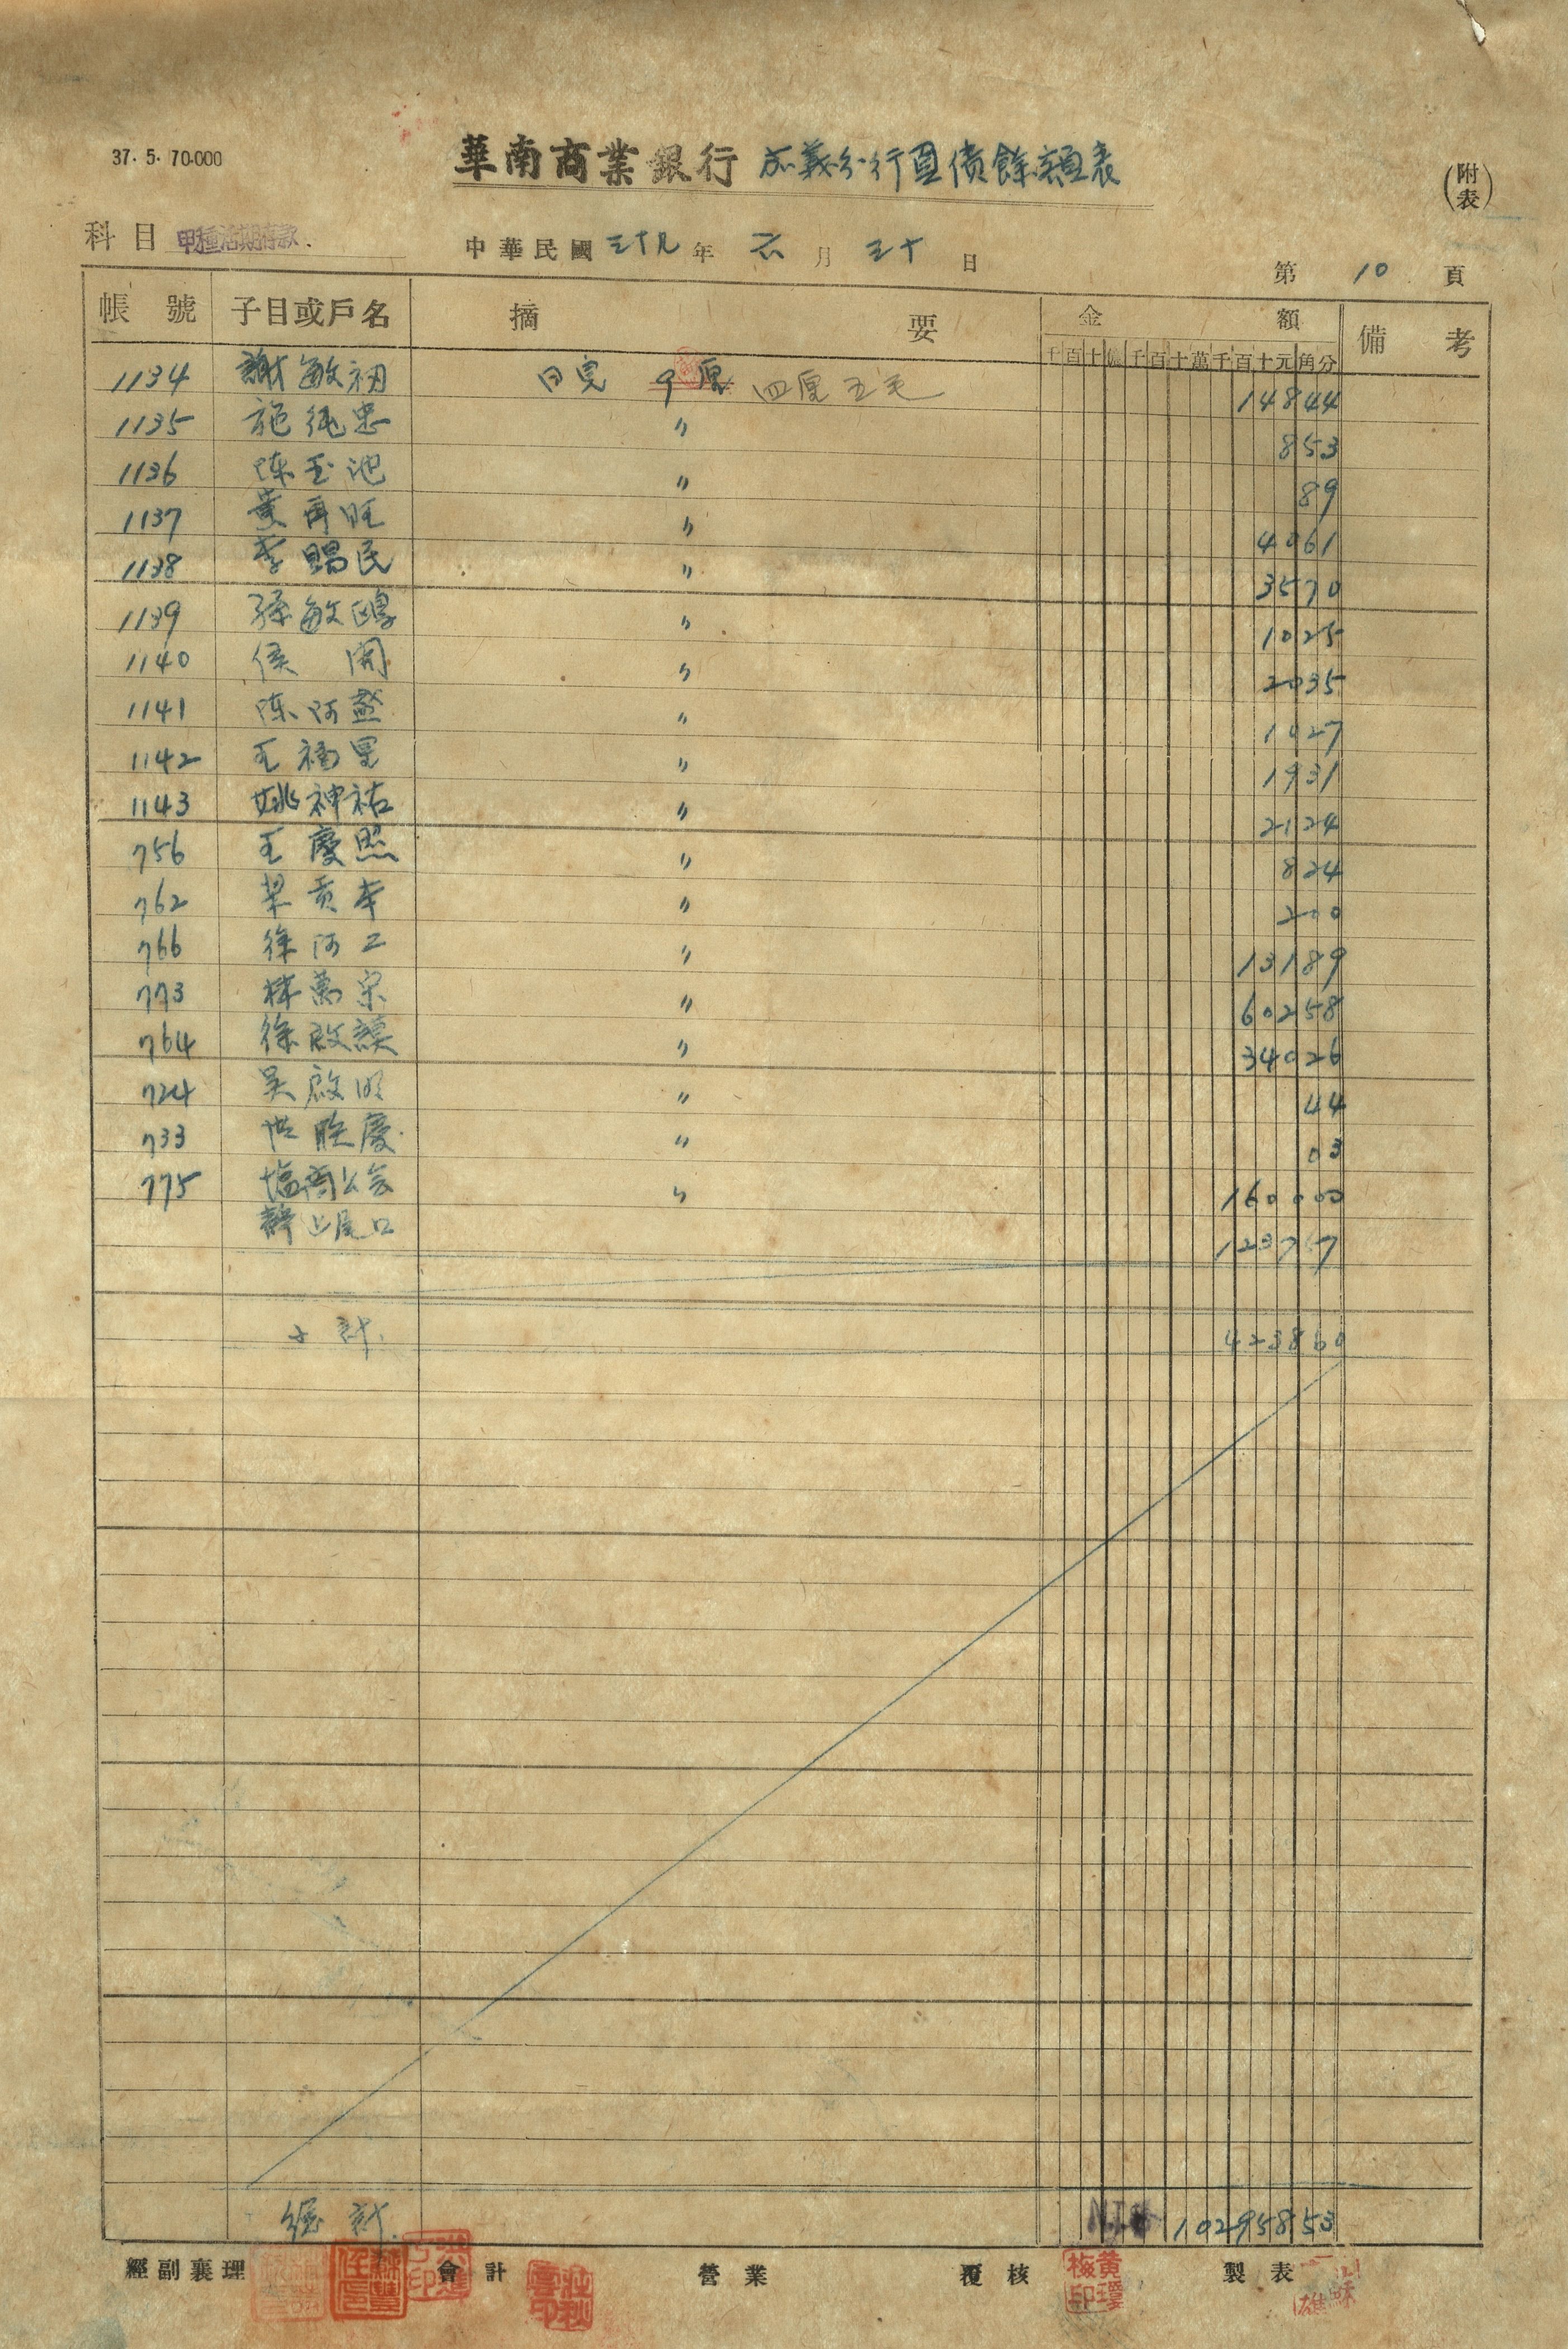 37. 5. 70.000
華南商業銀行 嘉義分行負債餘額表
(附表)
科目 甲種活期存款.
中華民國三十九年 六月 三十日
第 10 頁
帳號 子目或戶名 摘要 金額 備考
千百十億千百十萬千百十元角分
1134 謝敏初 日息 9厘 四厘五毛 14844
1135 施純忠 〃 853
1136 陈玉池 〃 89
1137 黃再旺 〃 4061
1138 李賜民 〃 3570
1139 孫敏鴻 〃 1025
1140 侯 開 〃 2035
1141 陈阿盛 〃 1027
1142 王福 〃 1931
1143 姚神祐 〃 2124
756 王慶照 〃 824
762 梁貢 〃 200
766 徐阿二 〃 13189
773 林萬宗 〃 60258
764 徐啟謨 〃 34026
724 吴啟明 〃 44
733 慶 〃 03
775 塩商公会 〃 160000
靜止户口 123757
小計. 423860
總計. NT$ 10295853
經副襄理 會計 營業 覆核 製表
黃瓊梅印